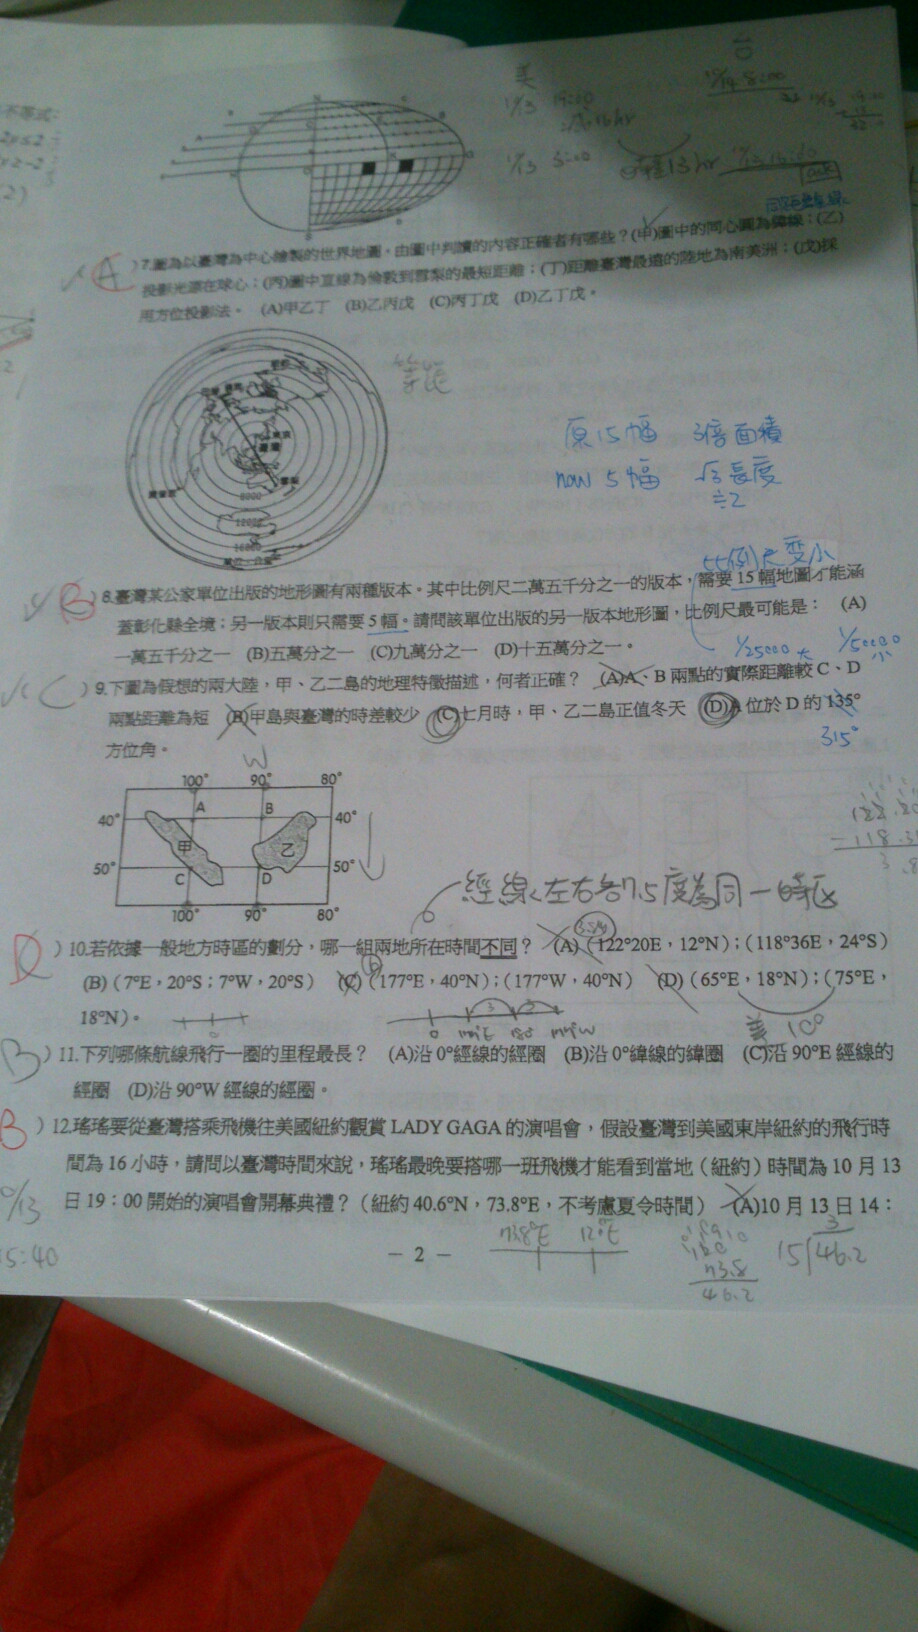 不等式:
美
10/14 8:00
10/13 19:00
10/13 3:00
A )7.圖為以臺灣為中心繪製的世界地圖。由圖中判讀的內容正確者有哪些？(甲)圖中的同心圓為緯線；(乙)
投影光源在球心；(丙)圖中直線為倫敦到雪梨的最短距離；(丁)距離臺灣最遠的陸地為南美洲；(戊)採
用方位投影法。 (A)甲乙丁 (B)乙丙戊 (C)丙丁戊 (D)乙丁戊。
等距
臺灣
8000
12000
16000
原15幅 3倍面積
now 5幅 √3長度
≒2
比例尺變小
B )8.臺灣某公家單位出版的地形圖有兩種版本。其中比例尺二萬五千分之一的版本，需要15幅地圖才能涵
蓋彰化縣全境；另一版本則只需要5幅。請問該單位出版的另一版本地形圖，比例尺最可能是： (A)
一萬五千分之一 (B)五萬分之一 (C)九萬分之一 (D)十五萬分之一。
1/25000 大 1/50000 小
C )9.下圖為假想的兩大陸，甲、乙二島的地理特徵描述，何者正確？ (A)A、B兩點的實際距離較C、D
兩點距離為短 (B)甲島與臺灣的時差較少 (C)七月時，甲、乙二島正值冬天 (D)A位於D的135°
方位角。
315°
W
100° 90° 80°
40° A B 40°
甲 乙
50° C D 50°
100° 90° 80°
122.20
-118.3
經線、左右各7.5度為同一時區
D )10.若依據一般地方時區的劃分，哪一組兩地所在時間不同？ (A)(122°20E，12°N)；(118°36E，24°S)
(B)(7°E，20°S；7°W，20°S) (C)(177°E，40°N)；(177°W，40°N) (D)(65°E，18°N)；(75°E，
18°N)。
0
0 180
差10°
B )11.下列哪條航線飛行一圈的里程最長？ (A)沿0°經線的經圈 (B)沿0°緯線的緯圈 (C)沿90°E經線的
經圈 (D)沿90°W經線的經圈。
B )12.瑤瑤要從臺灣搭乘飛機往美國紐約觀賞LADY GAGA的演唱會，假設臺灣到美國東岸紐約的飛行時
間為16小時，請問以臺灣時間來說，瑤瑤最晚要搭哪一班飛機才能看到當地（紐約）時間為10月13
日19：00開始的演唱會開幕典禮？（紐約40.6°N，73.8°E，不考慮夏令時間） (A)10月13日14：
10/13
15:40
－ 2 －
73.8°E 12°E
73.8
46.2
3
15 46.2